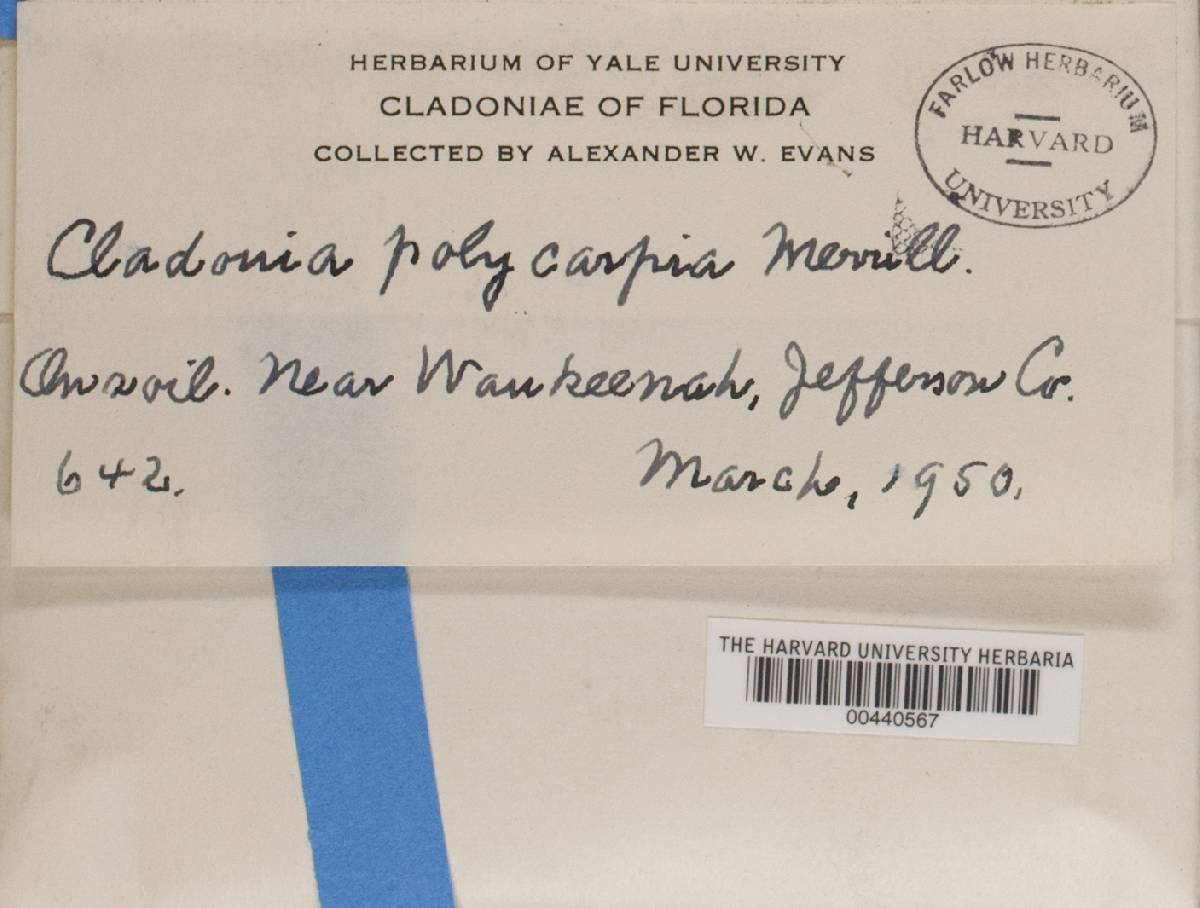 HERBARIUM OF YALE UNIVERSITY
CLADONIAE OF FLORIDA
COLLECTED BY ALEXANDER W. EVANS
FARLOW HERBARIUM
HARVARD
UNIVERSITY
Cladonia polycarpia Merrill.
On soil. Near Waukeenah, Jefferson Co.
642.
March, 1950.
THE HARVARD UNIVERSITY HERBARIA
00440567